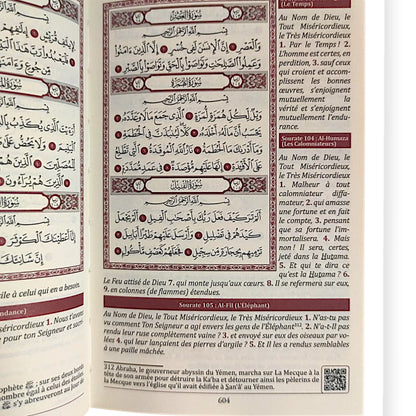 لِإِيلَٰفِ
إِۦلَٰفِهِمْ
مِّن جُوعٍ وَءَامَنَهُم
أَرَءَيْتَ ٱلَّذِى يُكَذِّبُ بِٱلدِّينِ
لِّلْمُصَلِّينَ
ٱلَّذِينَ هُمْ يُرَآءُونَ
إِنَّآ أَعْطَيْنَٰكَ ٱلْكَوْثَرَ
إِنَّ شَانِئَكَ
ile à celui qui en a besoin.
ndance)
éricordieux 1. Nous t'avons
pour ton Seigneur et sacri-
ophète ﷺ sur ses deux
s'y abreuveront au jour du
سُورَةُ ٱلْعَصْرِ
بِسْمِ ٱللَّهِ ٱلرَّحْمَٰنِ ٱلرَّحِيمِ
وَٱلْعَصْرِ ١ إِنَّ ٱلْإِنسَٰنَ لَفِى خُسْرٍ ٢ إِلَّا ٱلَّذِينَ ءَامَنُوا۟
وَعَمِلُوا۟ ٱلصَّٰلِحَٰتِ وَتَوَاصَوْا۟ بِٱلْحَقِّ وَتَوَاصَوْا۟ بِٱلصَّبْرِ ٣
سُورَةُ ٱلْهُمَزَةِ
بِسْمِ ٱللَّهِ ٱلرَّحْمَٰنِ ٱلرَّحِيمِ
وَيْلٌ لِّكُلِّ هُمَزَةٍ لُّمَزَةٍ ١ ٱلَّذِى جَمَعَ مَالًا وَعَدَّدَهُۥ ٢
يَحْسَبُ أَنَّ مَالَهُۥٓ أَخْلَدَهُۥ ٣ كَلَّا لَيُنۢبَذَنَّ فِى ٱلْحُطَمَةِ ٤
وَمَآ أَدْرَىٰكَ مَا ٱلْحُطَمَةُ ٥ نَارُ ٱللَّهِ ٱلْمُوقَدَةُ ٦ ٱلَّتِى تَطَّلِعُ
عَلَى ٱلْأَفْـِٔدَةِ ٧ إِنَّهَا عَلَيْهِم مُّؤْصَدَةٌ ٨ فِى عَمَدٍ مُّمَدَّدَةٍۭ ٩
سُورَةُ ٱلْفِيلِ
بِسْمِ ٱللَّهِ ٱلرَّحْمَٰنِ ٱلرَّحِيمِ
أَلَمْ تَرَ كَيْفَ فَعَلَ رَبُّكَ بِأَصْحَٰبِ ٱلْفِيلِ ١ أَلَمْ يَجْعَلْ
كَيْدَهُمْ فِى تَضْلِيلٍ ٢ وَأَرْسَلَ عَلَيْهِمْ طَيْرًا أَبَابِيلَ ٣
تَرْمِيهِم بِحِجَارَةٍ مِّن سِجِّيلٍ ٤ فَجَعَلَهُمْ كَعَصْفٍ مَّأْكُولٍۭ ٥
(Le Temps)
Au Nom de Dieu, le
Tout Miséricordieux,
le Très Miséricordieux
1. Par le Temps! 2.
L'homme est certes, en
perdition, 3. sauf ceux
qui croient et accom-
plissent les bonnes
œuvres, s'enjoignent
mutuellement la
vérité et s'enjoignent
mutuellement l'endu-
rance.
Sourate 104 : Al-Humaza
(Les Calomniateurs)
Au Nom de Dieu, le
Tout Miséricordieux,
le Très Miséricordieux
1. Malheur à tout
calomniateur diffa-
mateur, 2. qui amasse
une fortune et en fait le
compte, 3. pensant que
sa fortune l'im-
mortalisera. 4. Mais
non ! Il sera, certes,
jeté dans la Hutama.
5. Et qui te dira ce
qu'est la Hutama ? 6.
Le Feu attisé de Dieu 7. qui monte jusqu'aux cœurs. 8. Il se refermera sur eux,
9. en colonnes (de flammes) étendues.
Sourate 105 : Al-Fîl (L'Éléphant)
Au Nom de Dieu, le Tout Miséricordieux, le Très Miséricordieux 1. N'as-tu pas
vu comment Ton Seigneur a agi envers les gens de l'Éléphant³¹². 2. N'a-t-Il pas
rendu leur ruse complètement vaine ? 3. et envoyé sur eux des oiseaux par vo-
lées 4. qui leur lançaient des pierres d'argile ? 5. Et Il les a rendus semblables
à une paille mâchée.
312 Abraha, le gouverneur abyssin du Yémen, marcha sur
la Mecque pour détruire la Ka'ba et détourner ainsi les pèlerins de
la Mecque vers l'église qu'il avait édifiée à Ṣan'â' au Yémen.
604